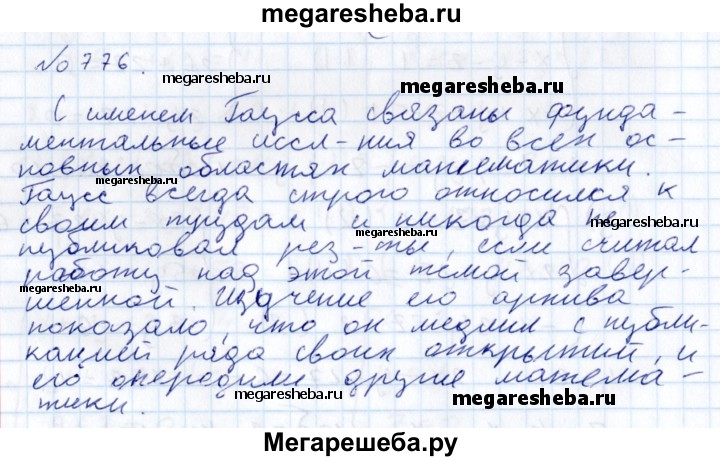 megaresheba.ru
№776.
megaresheba.ru
megaresheba.ru
С именем Гаусса связаны фунда-
ментальные иссл-ния во всех ос-
megaresheba.ru
новных областях математики.
megaresheba.ru
Гаусс всегда строго относился к
своим трудам и никогда не
megaresheba.ru
публиковал рез-ты, если считал
работу над этой темой завер-
megaresheba.ru
шенной. Изучение его архива
показало, что он медлил с публи-
кацией ряда своих открытий, и
его опередили другие матема-
megaresheba.ru
тики.
megaresheba.ru
Мегарешеба.ру